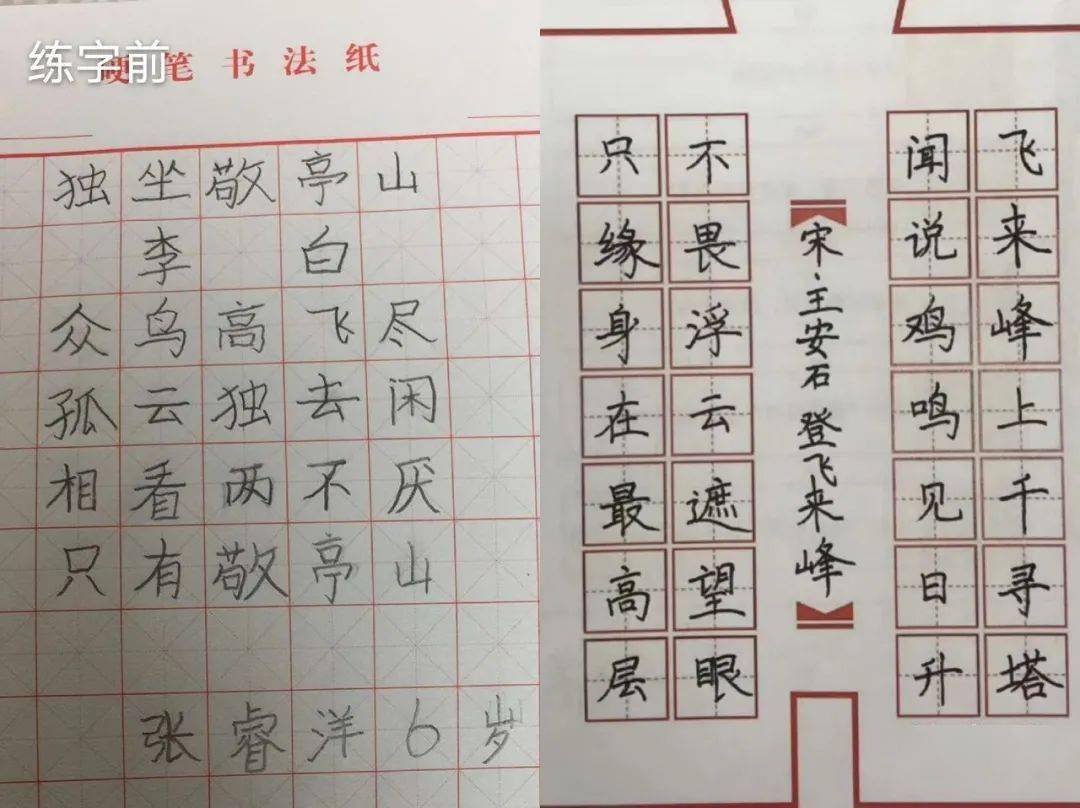 练字前
硬笔书法纸
独坐敬亭山
李白
众鸟高飞尽
孤云独去闲
相看两不厌
只有敬亭山
张睿洋6岁
飞来峰上千寻塔
闻说鸡鸣见日升
宋·王安石 登飞来峰
不畏浮云遮望眼
只缘身在最高层